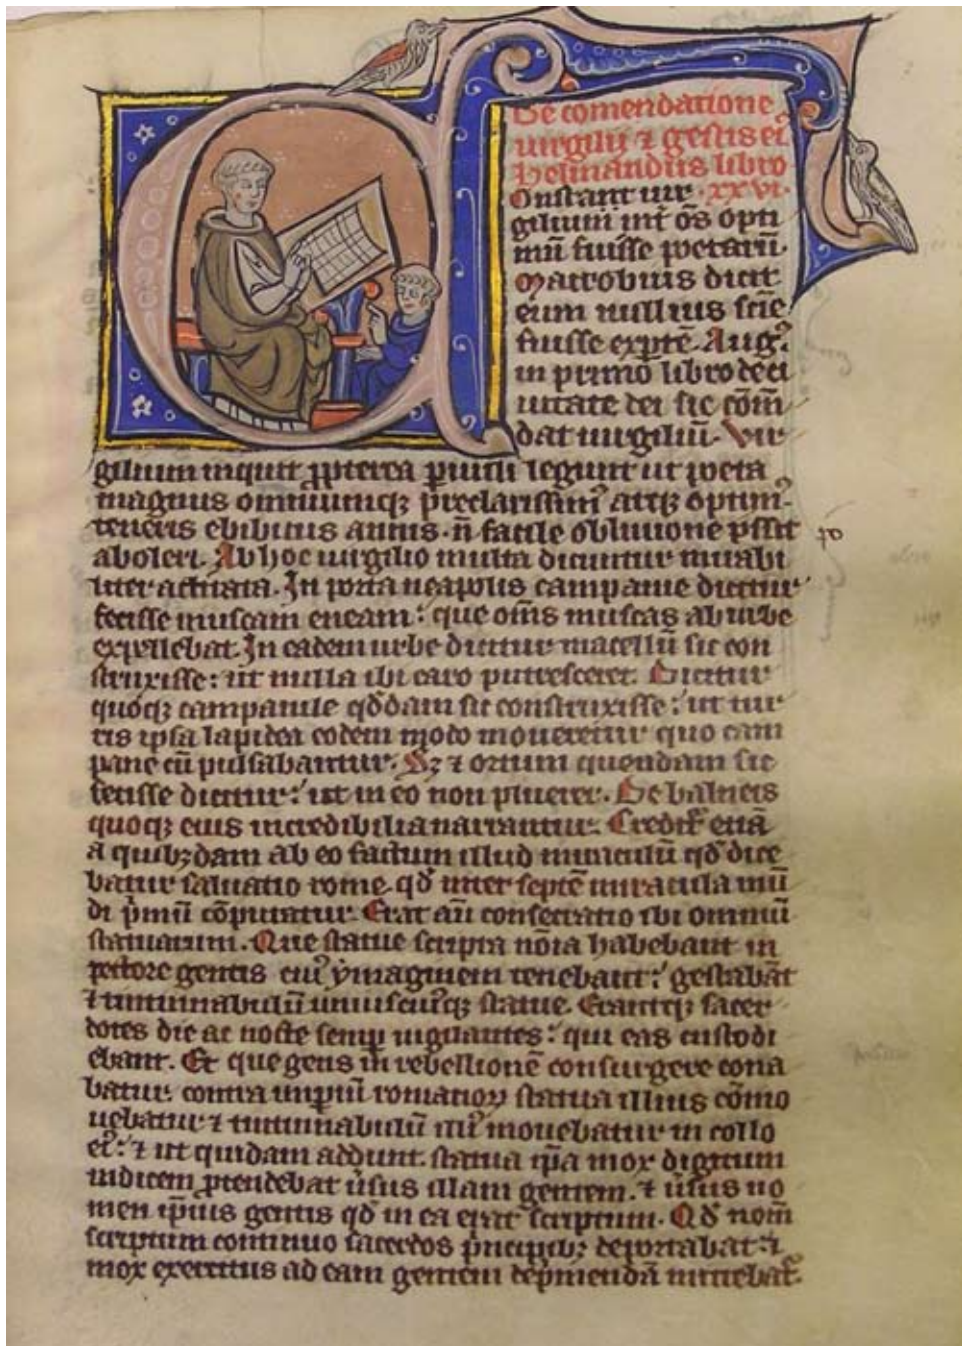 De comendatione
uirgilii ⁊ gestis eiꝰ
Helinandus libro
xxvi.
Onstant uir
gilium int̃ om̃s opti
mũ fuisse poetarũ.
Macrobius dicit
eum nullius sciẽ
fuisse expertẽ. Augꝰ
in primo libro de ci
uitate dei sic cõm̃
dat uirgiliũ. Vir
gilium inquit ꝓpterea paruuli legunt ut poeta
magnus omniumqꝫ preclarissimꝰ atqꝫ optimꝰ
teneris ebibitus annis. ñ facile obliuione possit
aboleri. Ab hoc uirgilio multa dicuntur mirabi
liter actitata. In porta neapolis campanie dicitur
fecisse muscam eneam: que om̃s muscas ab urbe
expellebat. In eadem urbe dicitur macellũ sic con
struxisse: ut nulla ibi caro putresceret. Dicitur
quoqꝫ campanile qd̃dam sic construxisse: ut tur
ris ipsa lapidea eodem modo moueretur quo cam
pane cũ pulsabantur. Sꝫ ⁊ ortum quendam sic
fecisse dicitur: ut in eo non plueret. De balneis
quoqꝫ eius incredibilia narrantur. Credit᷑ etiã
a quibꝫdam ab eo factum illud miraculũ qd̃ dice
batur saluatio rome. qd̃ inter septẽ miracula mũ
di p̃mũ cõputatur. Erat aũ consecratio ibi omniũ
statuarum. Que statue scripta noĩa habebant in
pectore gentis cuiꝰ ymaginem tenebant: gestabãt
⁊ tintinnabulũ uniuscuiꝰqꝫ statue. Erantqꝫ sacer
dotes die ac nocte semꝑ uigilantes: qui eas custodi
ebant. Et que gens in rebellionẽ consurgere cona
batur contra imꝑiũ romanoꝝ statua illius cõmo
uebatur ⁊ tintinnabulũ illiꝰ mouebatur in collo
eiꝰ: ⁊ ut quidam addunt. statua ip̃a mox digitum
indicem ꝓtendebat ũsus illam gentem. ⁊ ũsus no
men ip̃ius gentis qd̃ in ea erat scriptum. Qd̃ nom̃
scriptum continuo sacerdos p̃ncipibꝫ deportabat: ⁊
mox exercitus ad eam gentem rep̃mendã mittebat᷑.